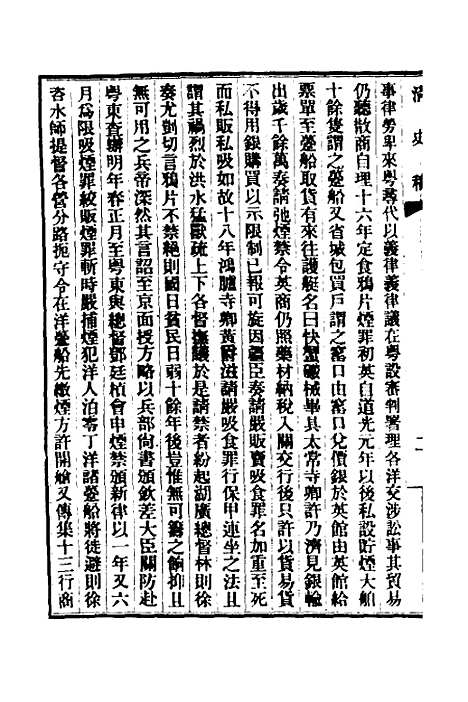 清史稿
二
事律勞卑來粵尋代以義律義律議在粵設審判署理各洋交涉訟事其貿易
仍聽散商自理十六年定食鴉片煙罪初英自道光元年以後私設貯煙大舶
十餘隻謂之躉船又省城包買戶謂之窰口由窰口兌價銀於英館由英館給
票單至躉船取貨有來往護艇名曰快蟹礮械畢具太常寺卿許乃濟見銀輸
出歲千餘萬奏請弛煙禁令英商仍照藥材納稅入關交行後只許以貨易貨
不得用銀購買以示限制已報可旋因疆臣奏請嚴販賣吸食罪名加重至死
而私販私吸如故十八年鴻臚寺卿黃爵滋請嚴吸食罪行保甲連坐之法且
謂其禍烈於洪水猛獸疏上下各督撫議於是請禁者紛起湖廣總督林則徐
奏尤剴切言鴉片不禁絕則國日貧民日弱十餘年後豈惟無可籌之餉抑且
無可用之兵帝深然其言詔至京面授方略以兵部尚書頒欽差大臣關防赴
粵東查辦明年春正月至粵東與總督鄧廷楨會申煙禁頒新律以一年又六
月為限吸煙罪絞販煙罪斬時嚴捕煙犯洋人泊零丁洋諸躉船將徙避則徐
咨水師提督各營分路扼守令在洋躉船先繳煙方許開艙又傳集十三行商